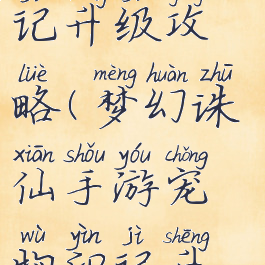 记升级攻
lüè mèng huàn zhū
略(梦幻诛
xiān shǒu yóu chǒng
仙手游宠
wù yìn jì shēng
物印记升